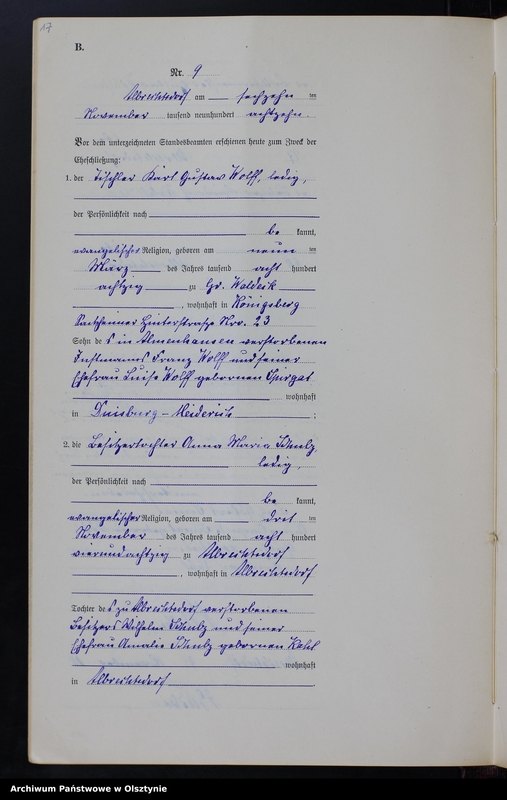 17
B.
Nr. 9
Albrechtsdorf am sechzehn ten
November tausend neunhundert achtzehn.
Vor dem unterzeichneten Standesbeamten erschienen heute zum Zweck der
Eheschließung:
1. der Tischler Karl Gustav Wolff, ledig,
der Persönlichkeit nach
be kannt,
evangelischer Religion, geboren am neun ten
März des Jahres tausend acht hundert
achtzig zu Gr. Waldeck
, wohnhaft in Königsberg
Hinterstraße Nro. 23
Sohn des in Almenhausen verstorbenen
Instmanns Franz Wolff und seiner
Ehefrau Luise Wolff gebornen
wohnhaft
in Duisburg-Meiderich ;
2. die Besitzertochter Anna Maria Schulz,
ledig,
der Persönlichkeit nach
be kannt,
evangelischer Religion, geboren am drit ten
November des Jahres tausend acht hundert
vierundachtzig zu Albrechtsdorf
, wohnhaft in Albrechtsdorf
Tochter des zu Albrechtsdorf verstorbenen
Besitzers Wilhelm Schulz und seiner
Ehefrau Amalie Schulz gebornen
wohnhaft
in Albrechtsdorf
Archiwum Państwowe w Olsztynie